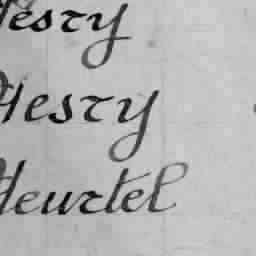 Hesry
Hesry
Heurtel